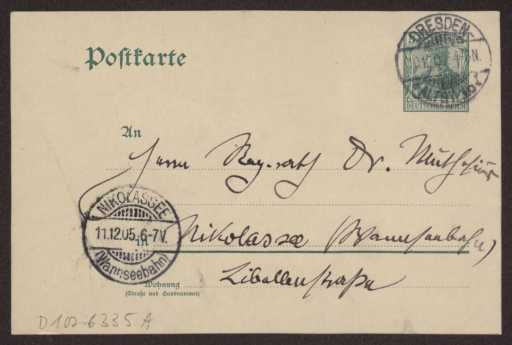 Postkarte
DRESDEN-
ALTST.
DEUTSCHES REICH
An
Herrn Reg.-rath Dr. Muthesius
NIKOLASSEE
11.12.05.6-7V.
(Wannseebahn)
Nikolassee (Wannseebahn)
Libellenstraße
Wohnung
(Straße und Hausnummer)
D 102-6335 A